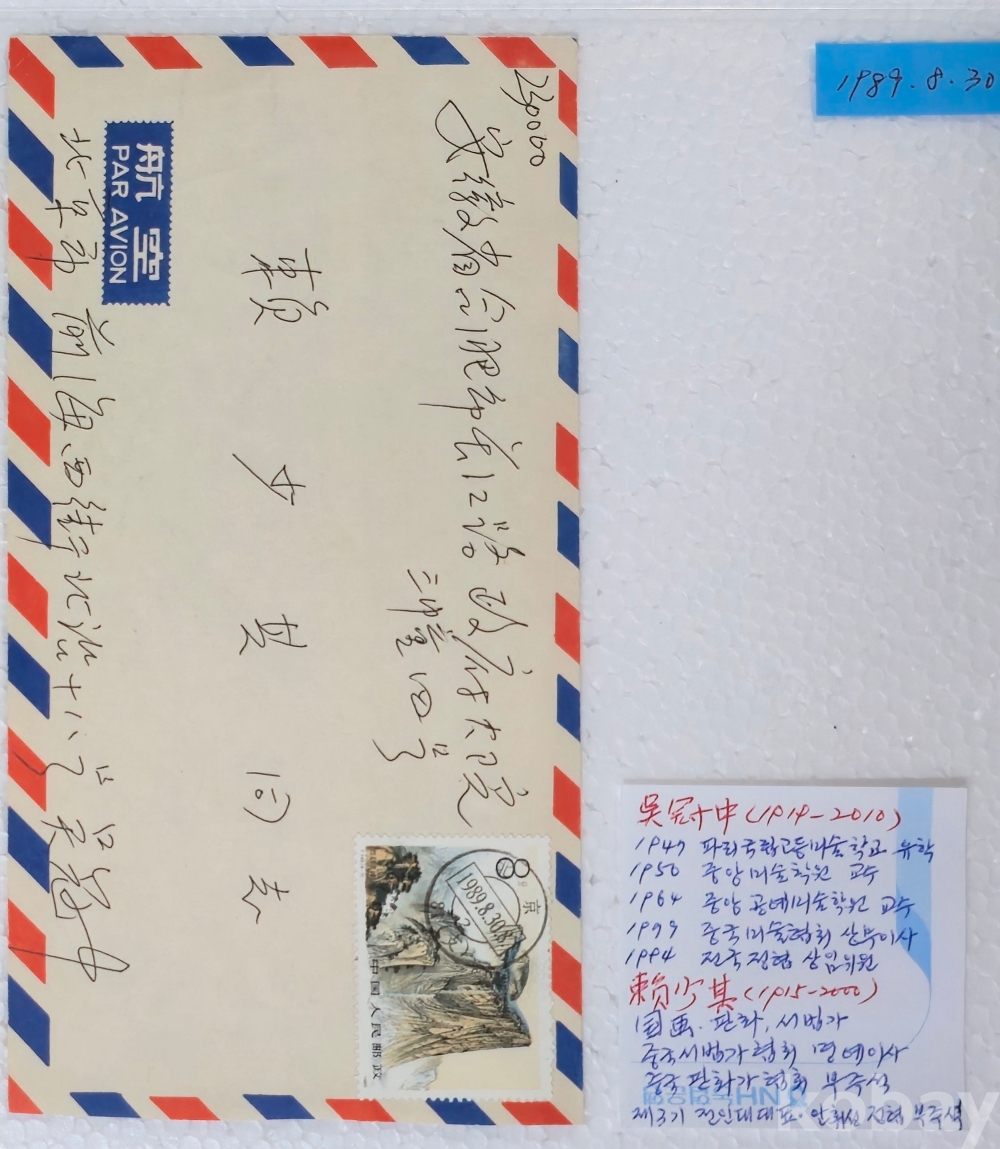 1989.8.30
230060
安徽省合肥市长江路政府大院
三幢四号
赖少其同志
北京市前海西街北沿十八号吴冠中
航空
PAR AVION
8分
京
1989.8.30.
中国人民邮政
吳冠中(1919-2010)
1949 파리국립고등미술학교 유학
1950 중앙미술학원 교수
1964 중앙공예미술학원 교수
1999 중국미술협회 상무이사
1994 전국정협 상임위원
賴少其(1915-2000)
国画. 판화, 서법가
중국서법가협회 명예이사
중국판화가협회 부주석
제3기 전인대대표. 안휘성정협부주석
kobay